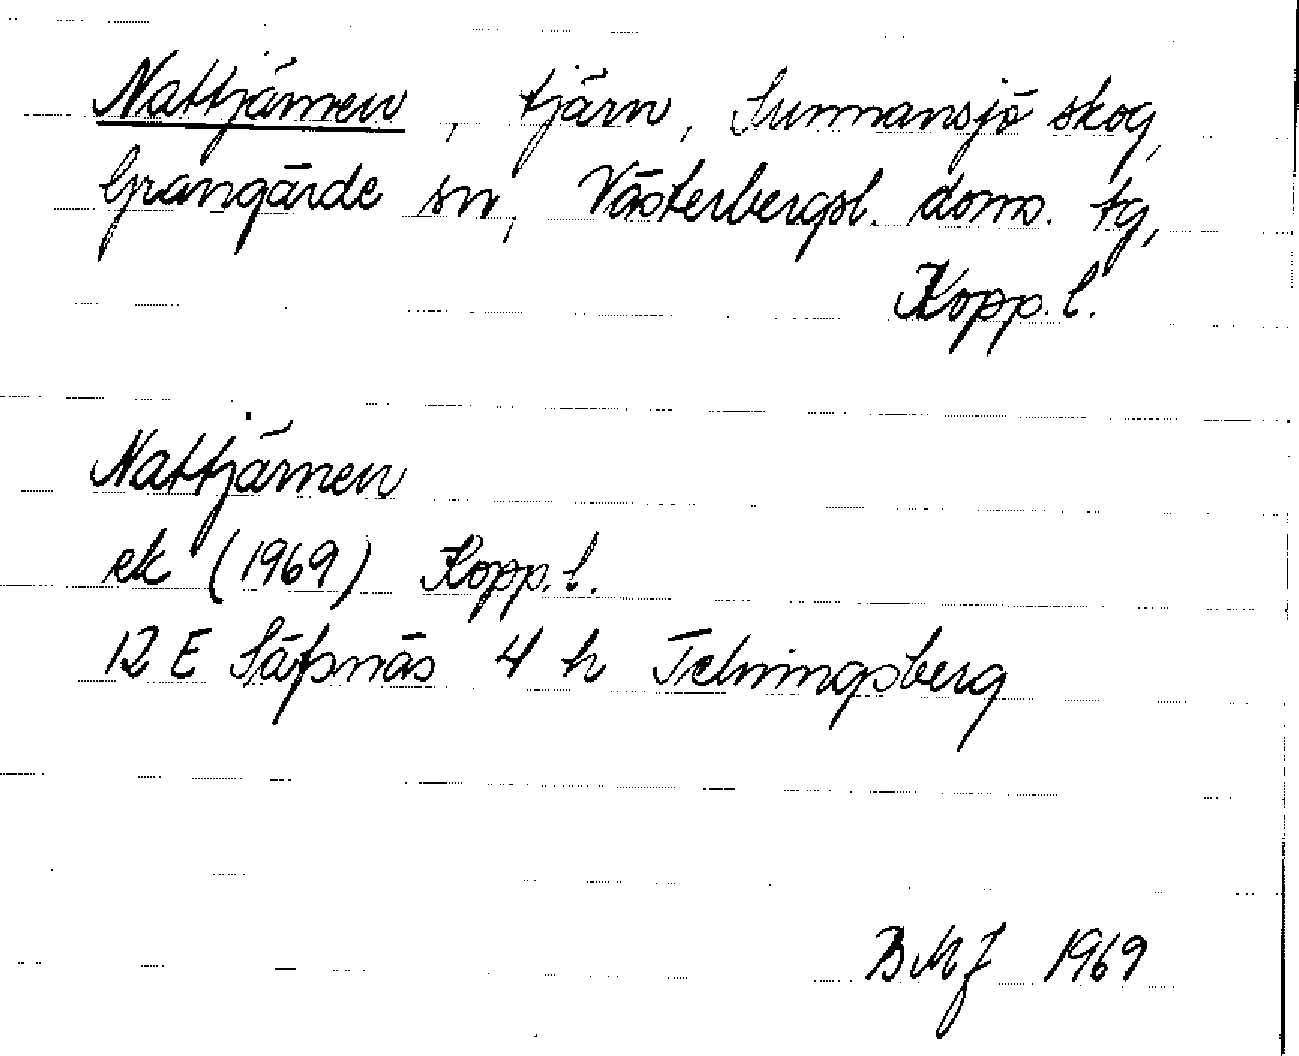 Nattjärnen, tjärn, Sunnansjö skog,
Grangärde sn, Västerbergsl. doms. tg,
Kopp. l.
Nattjärnen
ek (1969) Kopp. l.
12 E Säfsnäs 4 h Telningsberg
BMJ 1969